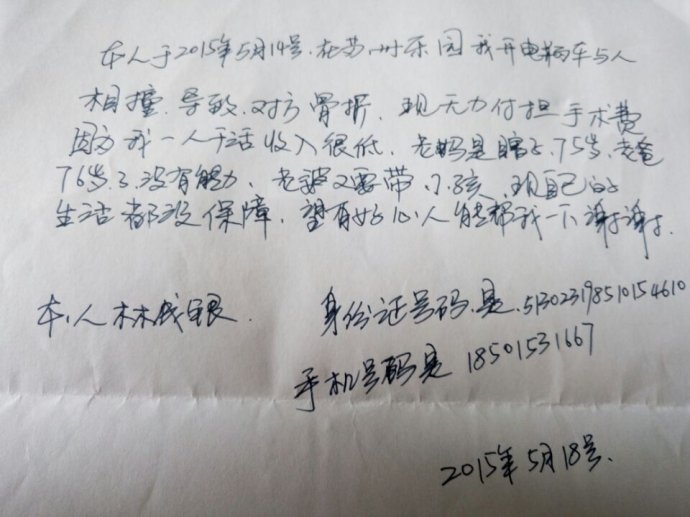 本人于2015年5月14号.在苏州乐园我开电瓶车与人
相撞.导致.对方骨折.现无力付担手术费
因为我一人干活收入很低.老妈是瞎子.75岁.老爸
76岁了.没有能力.老婆又要带小孩.现自己的
生活都没保障.望有好心人能帮我一下谢谢.
本人林成银.
身份证号码是.513023198510154610
手机号码是 18501531667
2015年5月18号.